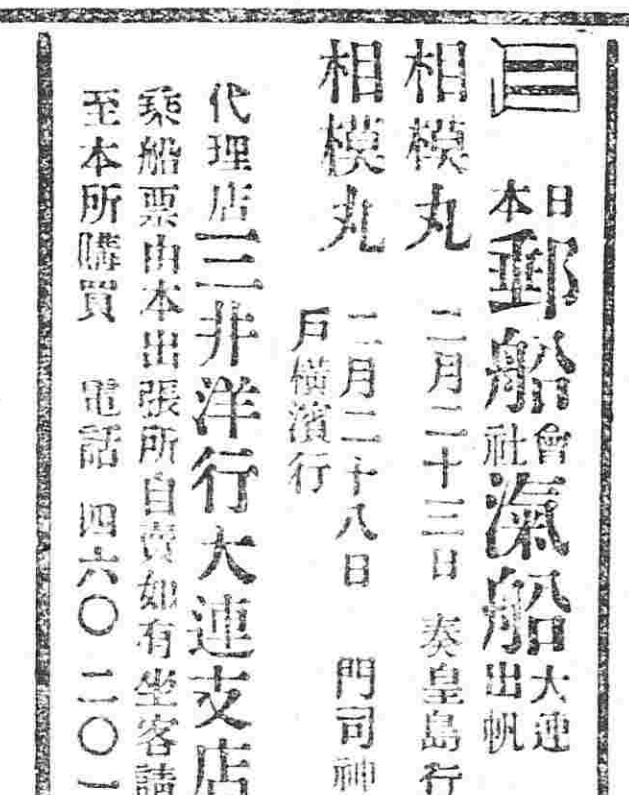 日本郵船會社滊船大連出帆
相模丸 二月二十三日 奏皇島行
相模丸 二月二十八日 門司神
戶橫濱行
代理店三井洋行大連支店
乘船票由本出張所自賣如有坐客請
至本所購買 電話 四六〇 二〇一